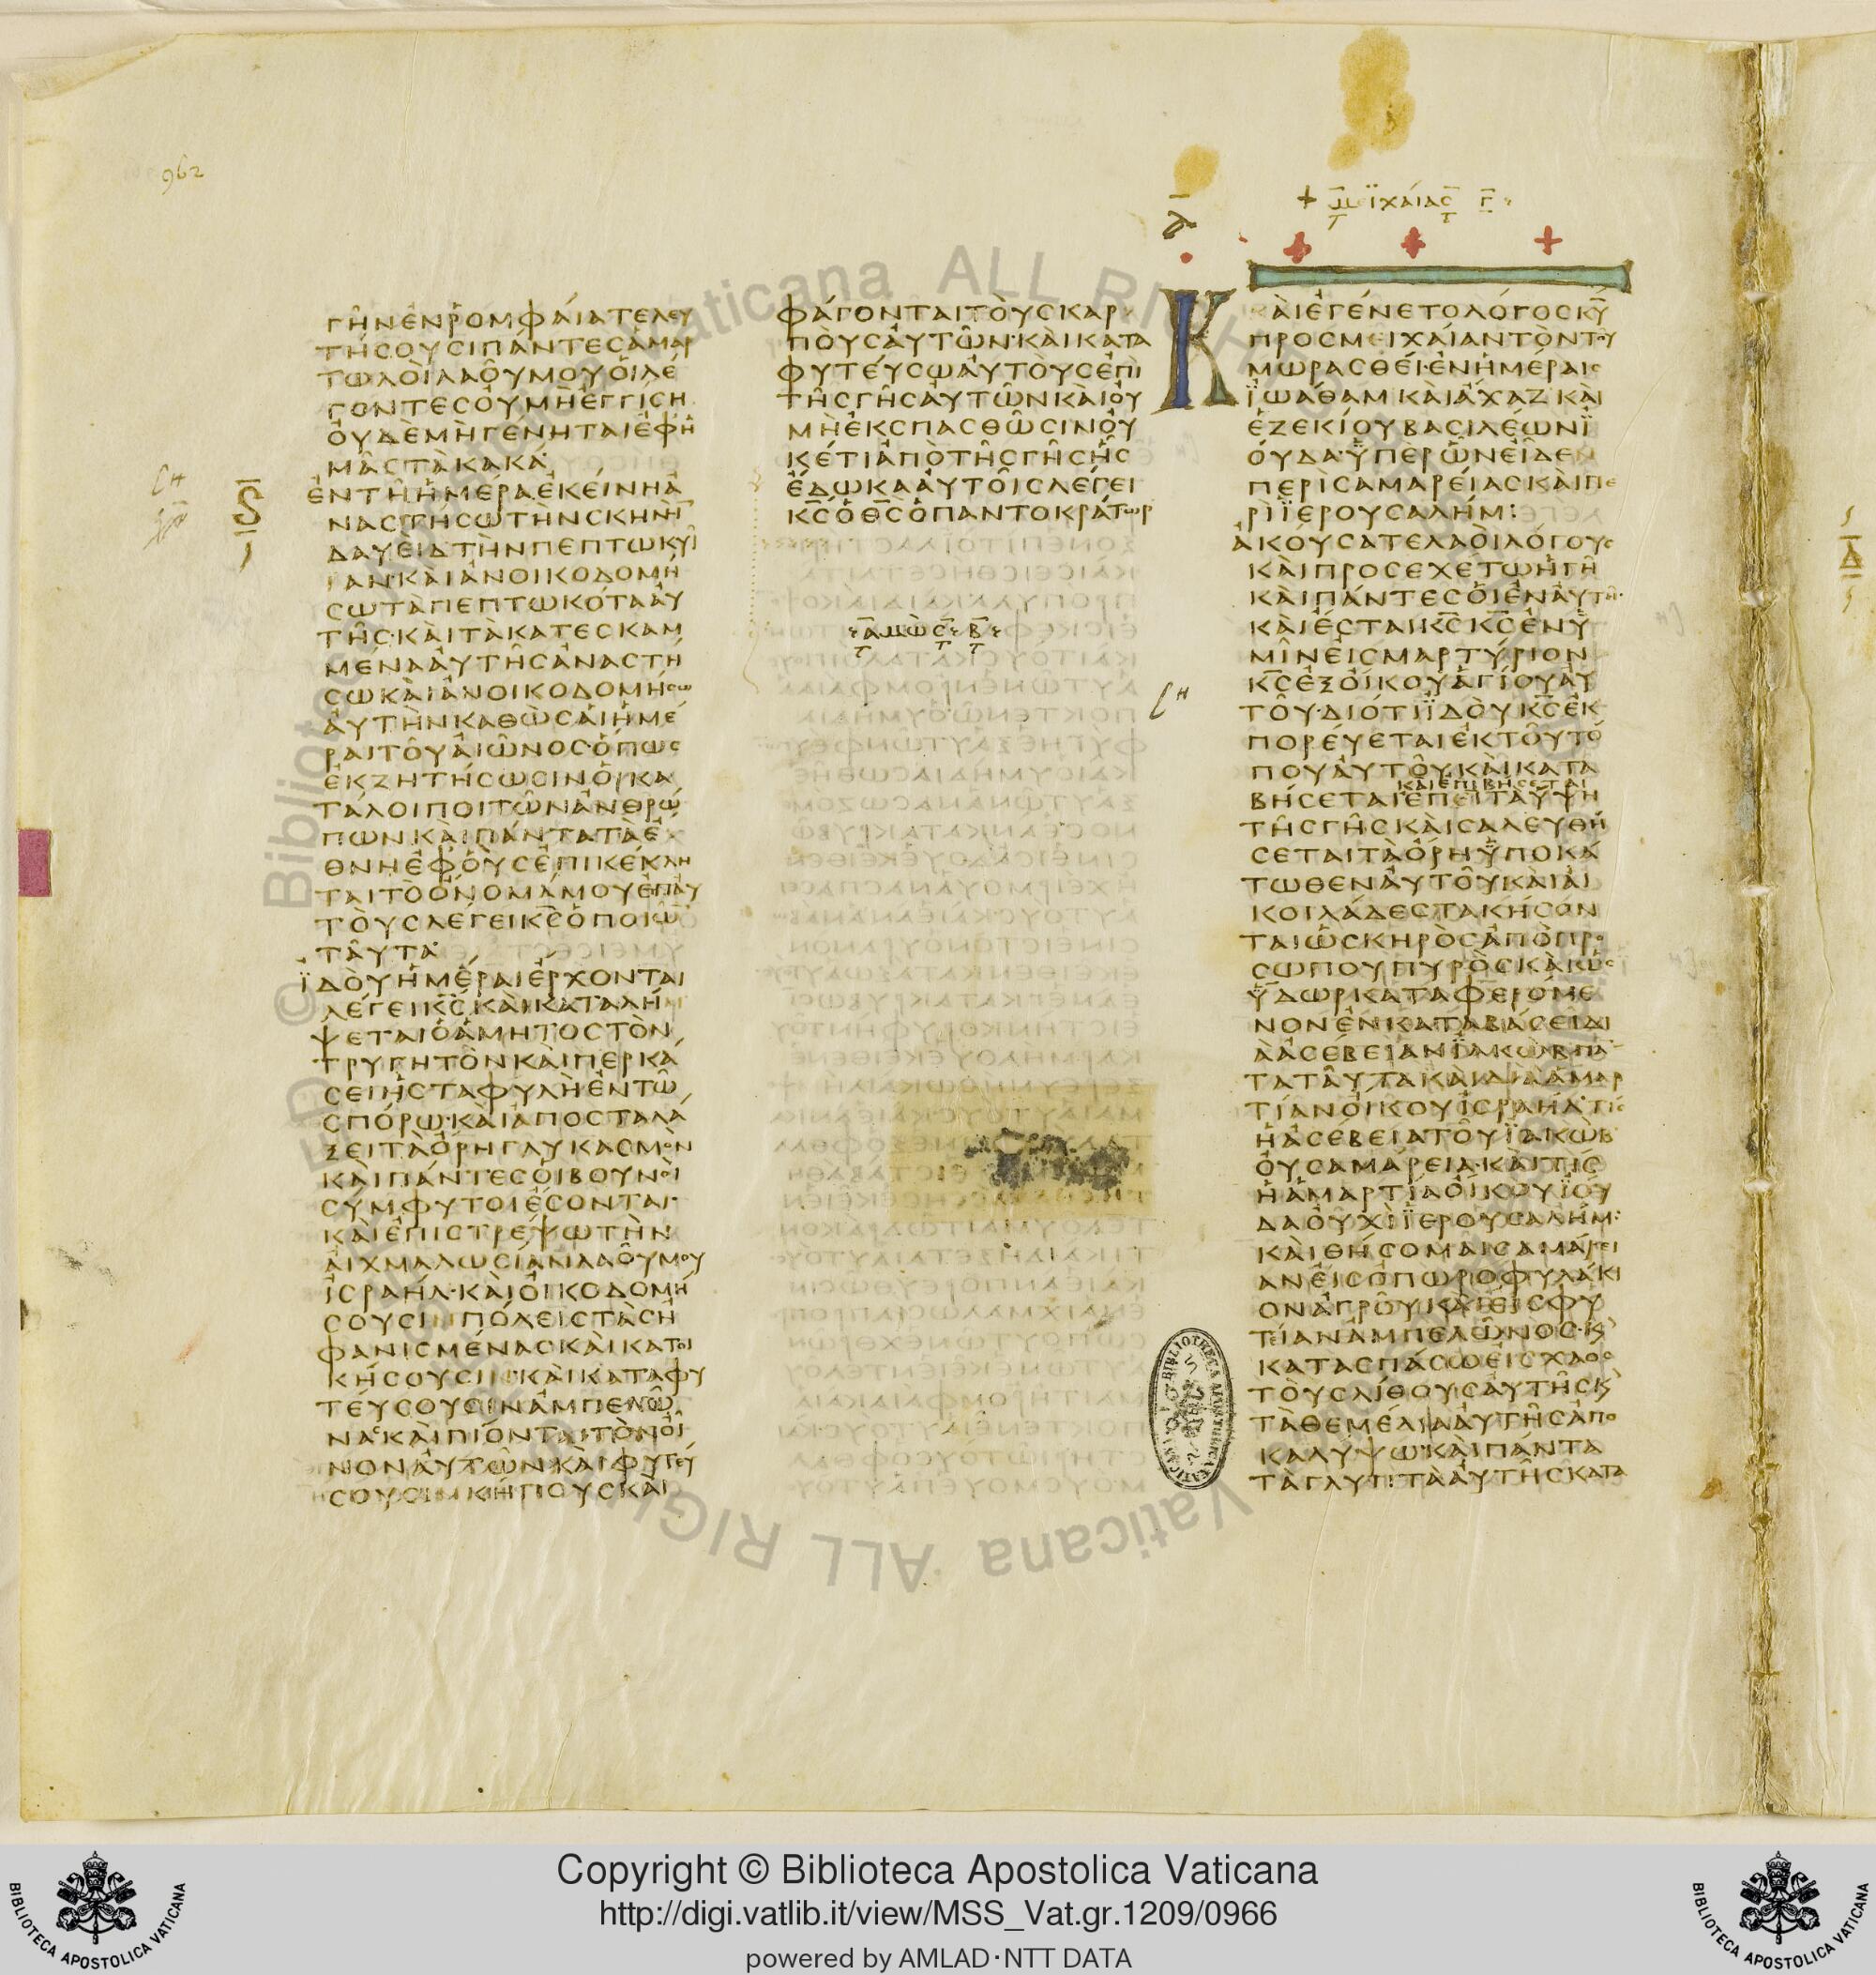 962
ΓΗΝΕΝΡΟΜΦΑΙΑΤΕΛΕΥ
ΤΗCΟΥCΙΠΑΝΤΕCΑΜΑΡ
ΤΩΛΟΙΛΑΟΥΜΟΥΟΙΛΕ
ΓΟΝΤΕCΟΥΜΗΕΓΓΙCΗ
ΟΥΔΕΜΗΓΕΝΗΤΑΙΕΦΗ
ΜΑCΤΑΚΑΚΑ
ΕΝΤΗΗΜΕΡΑΕΚΕΙΝΗΑ
ΝΑCΤΗCΩΤΗΝCΚΗΝΗ
ΔΑΥΕΙΔΤΗΝΠΕΠΤΩΚΥΙ
ΑΝ·ΚΑΙΑΝΟΙΚΟΔΟΜΗ
CΩΤΑΠΕΠΤΩΚΟΤΑΑΥ
ΤΗC·ΚΑΙΤΑΚΑΤΕCΚΑΜ
ΜΕΝΑΑΥΤΗCΑΝΑCΤΗ
CΩΚΑΙΑΝΟΙΚΟΔΟΜΗCΩ
ΑΥΤΗΝΚΑΘΩCΑΙΗΜΕ
ΡΑΙΤΟΥΑΙΩΝΟC·ΟΠΩC
ΕΚΖΗΤΗCΩCΙΝΟΙΚΑ
ΤΑΛΟΙΠΟΙΤΩΝΑΝΘΡΩ
ΠΩΝΚΑΙΠΑΝΤΑΤΑΕ
ΘΝΗΕΦΟΥCΕΠΙΚΕΚΛΗ
ΤΑΙΤΟΟΝΟΜΑΜΟΥΕΠΑΥ
ΤΟΥCΛΕΓΕΙΚ̅C̅ΟΠΟΙΩ
ΤΑΥΤΑ
ΪΔΟΥΗΜΕΡΑΙΕΡΧΟΝΤΑΙ
ΛΕΓΕΙΚ̅C̅ΚΑΙΚΑΤΑΛΗ
ΨΕΤΑΙΟΑΜΗΤΟCΤΟΝ
ΤΡΥΓΗΤΟΝΚΑΙΠΕΡΚΑ
CΕΙΗCΤΑΦΥΛΗΕΝΤΩ
CΠΟΡΩ·ΚΑΙΑΠΟCΤΑΛΑ
ΞΕΙΤΑΟΡΗΓΛΥΚΑCΜΟΝ
ΚΑΙΠΑΝΤΕCΟΙΒΟΥΝΟΙ
CΥΜΦΥΤΟΙΕCΟΝΤΑΙ·
ΚΑΙΕΠΙCΤΡΕΨΩΤΗΝ
ΑΙΧΜΑΛΩCΙΑΝΛΑΟΥΜΟΥ
ΙCΡΑΗΛ·ΚΑΙΟΙΚΟΔΟΜΗ
CΟΥCΙΠΟΛΕΙCΤΑCΗ
ΦΑΝΙCΜΕΝΑCΚΑΙΚΑΤΟΙ
ΚΗCΟΥCΙΝ·ΚΑΙΚΑΤΑΦΥ
ΤΕΥCΟΥCΙΝΑΜΠΕΛΩ
ΝΑCΚΑΙΠΙΟΝΤΑΙΤΟΝΟΙ
ΝΟΝΑΥΤΩΝΚΑΙΦΥΤΕΥ
CΟΥCΙΝΚΗΠΟΥCΚΑΙ
ΦΑΓΟΝΤΑΙΤΟΥCΚΑΡ
ΠΟΥCΑΥΤΩΝ·ΚΑΙΚΑΤΑ
ΦΥΤΕΥCΩΑΥΤΟΥCΕΠΙ
ΤΗCΓΗCΑΥΤΩΝΚΑΙΟΥ
ΜΗΕΚCΠΑCΘΩCΙΝΟΥ
ΚΕΤΙΑΠΟΤΗCΓΗCΗC
ΕΔΩΚΑΑΥΤΟΙCΛΕΓΕΙ
Κ̅C̅ΟΘ̅C̅ΟΠΑΝΤΟΚΡΑΤΩΡ
ΑΜΩC Β
+ ΜΪΧΑΙΑC Γ
ΚΑΙΕΓΕΝΕΤΟΛΟΓΟCΚ̅Υ̅
ΠΡΟCΜΕΙΧΑΙΑΝΤΟΝΤΟΥ
ΜΩΡΑCΘΕΙ·ΕΝΗΜΕΡΑΙC
ΪΩΑΘΑΜΚΑΙΑΧΑΖΚΑΙ
ΕΖΕΚΙΟΥΒΑCΙΛΕΩΝΪ
ΟΥΔΑ·ΫΠΕΡΩΝΕΙΔΕΝ
ΠΕΡΙCΑΜΑΡΕΙΑCΚΑΙΠΕ
ΡΙΪΕΡΟΥCΑΛΗΜ:
ΑΚΟΥCΑΤΕΛΑΟΙΛΟΓΟΥC
ΚΑΙΠΡΟCΕΧΕΤΩΗΓΗ
ΚΑΙΠΑΝΤΕCΟΙΕΝΑΥΤΗ·
ΚΑΙΕCΤΑΙΚ̅C̅Κ̅C̅ΕΝΫ
ΜΙΝΕΙCΜΑΡΤΥΡΙΟΝ
Κ̅C̅ΕΞΟΙΚΟΥΑΓΙΟΥΑΥ
ΤΟΥ·ΔΙΟΤΙΪΔΟΥΚ̅C̅ΕΚ
ΠΟΡΕΥΕΤΑΙΕΚΤΟΥΤΟ
ΠΟΥΑΥΤΟΥΚΑΙΚΑΤΑ
ΚΑΙΕΠΙΒΗCΕΤΑΙ
ΒΗCΕΤΑΙΕΠΙΤΑΥΨΗ
ΤΗCΓΗCΚΑΙCΑΛΕΥΘΗ
CΕΤΑΙΤΑΟΡΗΫΠΟΚΑ
ΤΩΘΕΝΑΥΤΟΥΚΑΙΑΙ
ΚΟΙΛΑΔΕCΤΑΚΗCΟΝ
ΤΑΙΩCΚΗΡΟCΑΠΟΠΡΟ
CΩΠΟΥΠΥΡΟCΚΑΙΩC
ΫΔΩΡΚΑΤΑΦΕΡΟΜΕ
ΝΟΝΕΝΚΑΤΑΒΑCΕΙΔΙ
ΑΑCΕΒΕΙΑΝΪΑΚΩΒΠΑ
ΤΑΤΑΥΤΑΚΑΙΔΙΑΑΜΑΡ
ΤΙΑΝΟΙΚΟΥΙCΡΑΗΛ·ΤΙC
ΗΑCΕΒΕΙΑΤΟΥΪΑΚΩΒ
ΟΥCΑΜΑΡΕΙΑ·ΚΑΙΤΙC
ΗΑΜΑΡΤΙΑΟΙΚΟΥΪΟΥ
ΔΑΟΥΧΙΪΕΡΟΥCΑΛΗΜ·
ΚΑΙΘΗCΟΜΑΙCΑΜΑΡΕΙ
ΑΝΕΙCΟΠΩΡΟΦΥΛΑΚΙ
ΟΝΑΓΡΟΥΚΑΙΕΙCΦΥ
ΤΕΙΑΝΑΜΠΕΛΩΝΟC·Κ
ΚΑΤΑCΠΑCΩΕΙCΧΑΟC
ΤΟΥCΛΙΘΟΥCΑΥΤΗCΚ
ΤΑΘΕΜΕΛΙΑΑΥΤΗCΑΠΟ
ΚΑΛΥΨΩ·ΚΑΙΠΑΝΤΑ
ΤΑΓΛΥΠΤΑΑΥΤΗCΚΑΤΑ
Copyright © Biblioteca Apostolica Vaticana
http://digi.vatlib.it/view/MSS_Vat.gr.1209/0966
powered by AMLAD·NTT DATA
BIBLIOTECA APOSTOLICA VATICANA
BIBLIOTECA APOSTOLICA VATICANA